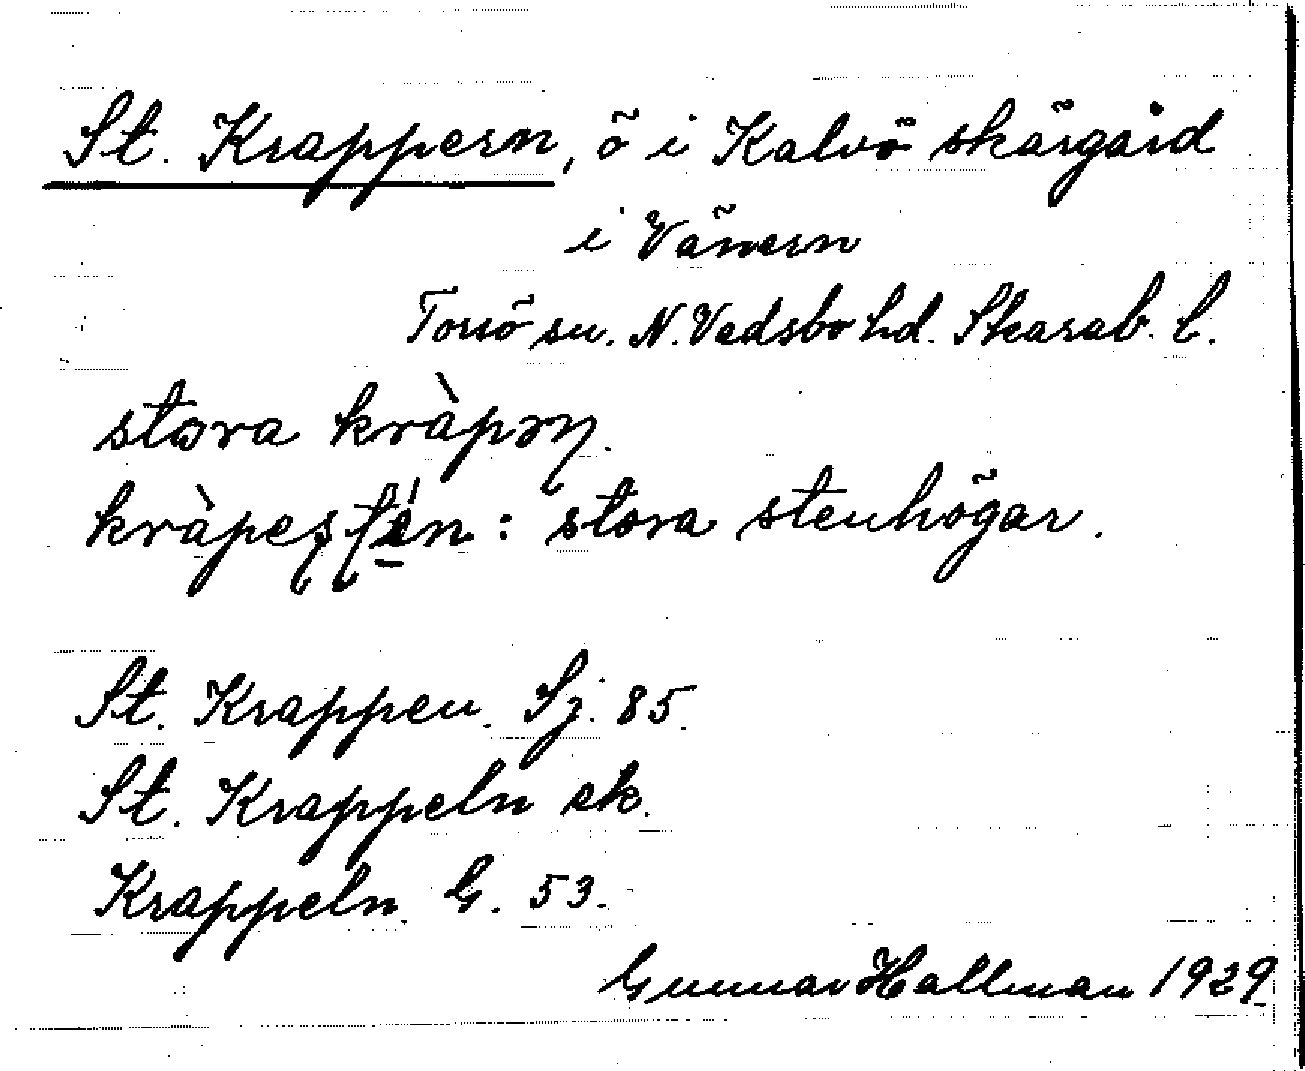 St. Krappern, ö i Kalvö skärgård
i Vänern
Torsö sn. N. Vadsbo hd. Skarab. l.
stora kràpəņ.
kràpes̩ te̠n : stora stenhögar.
St. Krappen. Sj. 85.
St. Krappeln ek.
Krappeln. G. 53.
Gunnar Hallman 1929